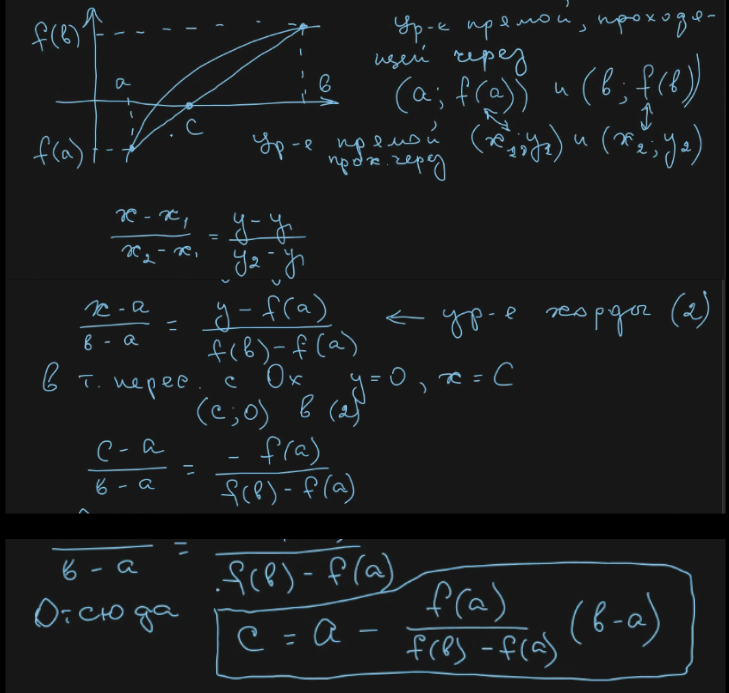 f(в)
a
в
C
f(a)
Ур-е прямой, проходя-
щей через
(a; f(a)) и (в; f(в))
Ур-е прямой
прох. через
(x₁; y₁) и (x₂; y₂)
(x - x₁)/(x₂ - x₁) = (y - y₁)/(y₂ - y₁)
(x - a)/(в - a) = (y - f(a))/(f(в) - f(a)) ← ур-е хорды (2)
В т. перес. с Ox y = 0, x = C
(c; 0) в (2)
(c - a)/(в - a) = (- f(a))/(f(в) - f(a))
в - a = f(в) - f(a)
Отсюда
c = a - f(a)/(f(в) - f(a)) (в - a)